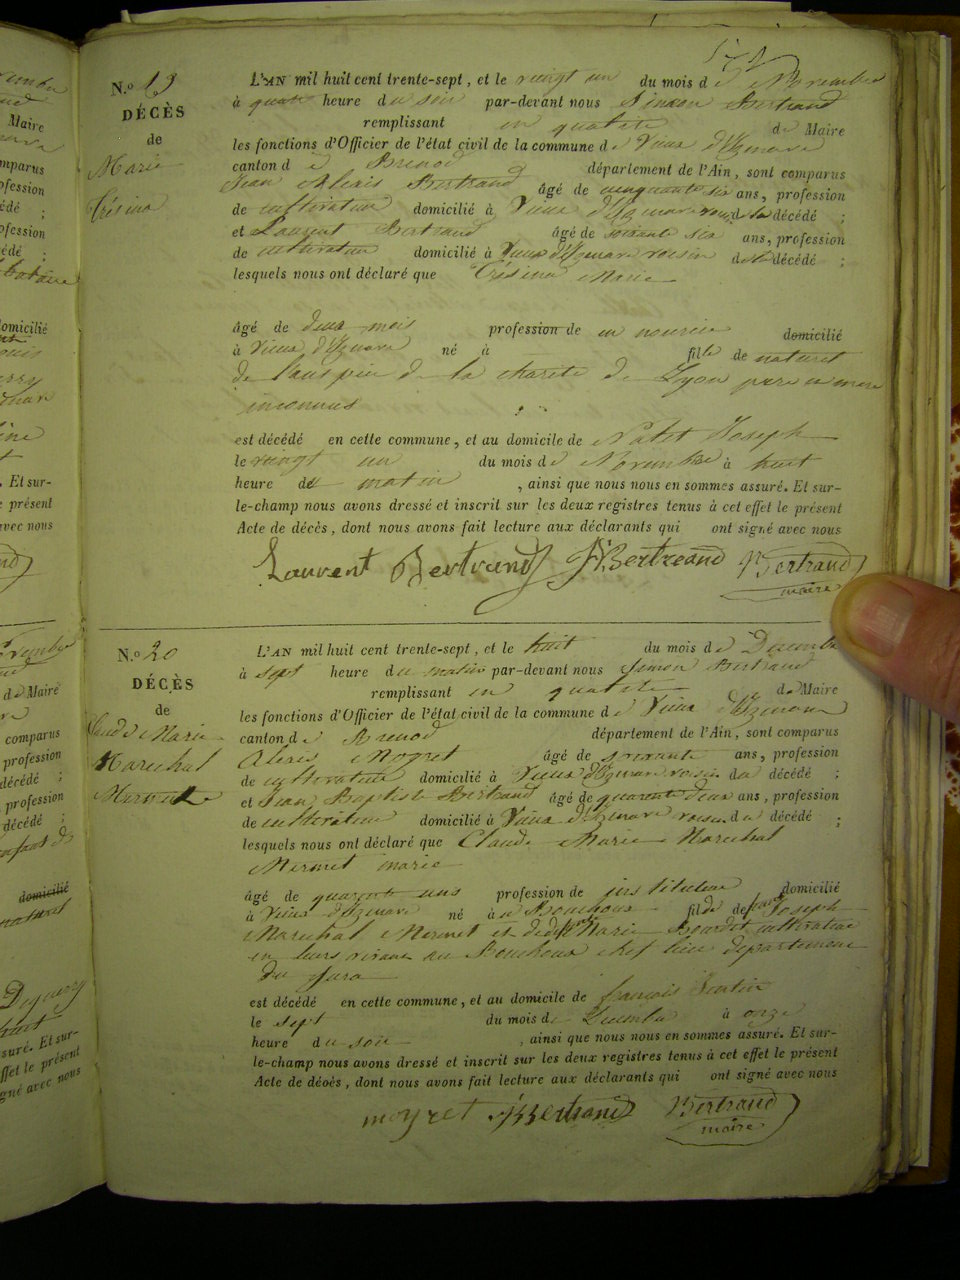 N.o 19
DÉCÈS
de
Marie
Trésina
L'AN mil huit cent trente-sept, et le vingt un du mois de Novembre
à quatre heure du soir par-devant nous Simon Bertrand
remplissant en qualité de Maire
les fonctions d'Officier de l'état civil de la commune de Vieux d'Izenave
canton de Brenod département de l'Ain, sont comparus
Jean Alexis Bertrand âgé de cinquante six ans, profession
de cultivateur domicilié à Vieux d'Izenave voisin de la décédé ;
et Laurent Bertrand âgé de soixante six ans, profession
de cultivateur domicilié à Vieux d'Izenave voisin de la décédé ;
lesquels nous ont déclaré que Trésina Marie
âgé de deux mois profession de en nourice domicilié
à Vieux d'Izenave né à fille de naturel
de l'auspice de la charité de Lyon père et mère
inconnus
est décédé en cette commune, et au domicile de Joseph
le vingt un du mois de Novembre à huit
heure du matin , ainsi que nous nous en sommes assuré. Et sur-
le-champ nous avons dressé et inscrit sur les deux registres tenus à cet effet le présent
Acte de décès, dont nous avons fait lecture aux déclarants qui ont signé avec nous
Laurent Bertrand JA Bertreand Bertrand
maire
N.o 20
DÉCÈS
de
Claude Marie
Marechal
Mermet
L'AN mil huit cent trente-sept, et le huit du mois de Decembre
à sept heure du matin par-devant nous Simon Bertrand
remplissant en qualité de Maire
les fonctions d'Officier de l'état civil de la commune de Vieux d'Izenave
canton de Brenod département de l'Ain, sont comparus
Alexis Moyret âgé de soixante ans, profession
de cultivateur domicilié à Vieux d'Izenave voisin du décédé ;
et Jean Baptiste Bertrand âgé de quarente deux ans, profession
de cultivateur domicilié à Vieux d'Izenave voisin du décédé ;
lesquels nous ont déclaré que Claude Marie Marechal
Mermet marie
âgé de quarente uns profession de instituteur domicilié
à Vieux d'Izenave né à Bouchoux fils de Joseph
Marechal Mermet et de Marie Bourdet cultivateur
en leurs vivant au Bouchoux chef lieu departement
du Jura
est décédé en cette commune, et au domicile de françois
le sept du mois de Decembre à onze
heure du soir , ainsi que nous nous en sommes assuré. Et sur-
le-champ nous avons dressé et inscrit sur les deux registres tenus à cet effet le présent
Acte de décès, dont nous avons fait lecture aux déclarants qui ont signé avec nous
moyret JBBertrand Bertrand
maire